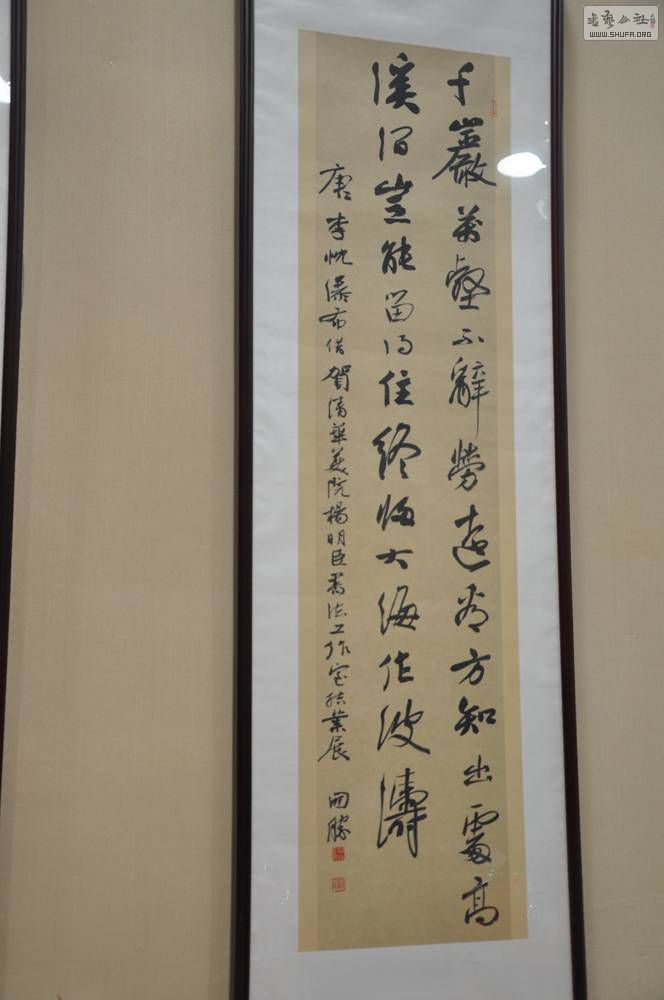 书艺公社
WWW.SHUFA.ORG
千巖萬壑不辭勞遠看方知出處高
溪澗豈能留得住終歸大海作波濤
唐李忱瀑布借賀清華美院楊明臣書法工作室結業展 国勝